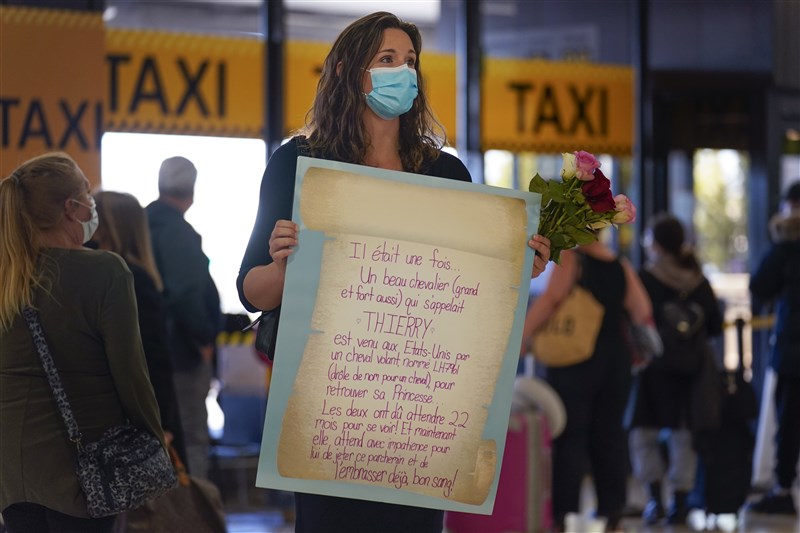 TAXI
TAXI
TAXI
Il était une fois...
Un beau chevalier (grand
et fort aussi) qui s'appelait
THIERRY
est venu aux Etats-Unis par
un cheval volant nommé LH7961
(drôle de nom pour un cheval), pour
retrouver sa Princesse.
Les deux ont dû attendre 22
mois pour se voir! Et maintenant
elle, attend avec impatience pour
lui de jeter ce parchemin et de
l'embrasser déjà, bon sang!